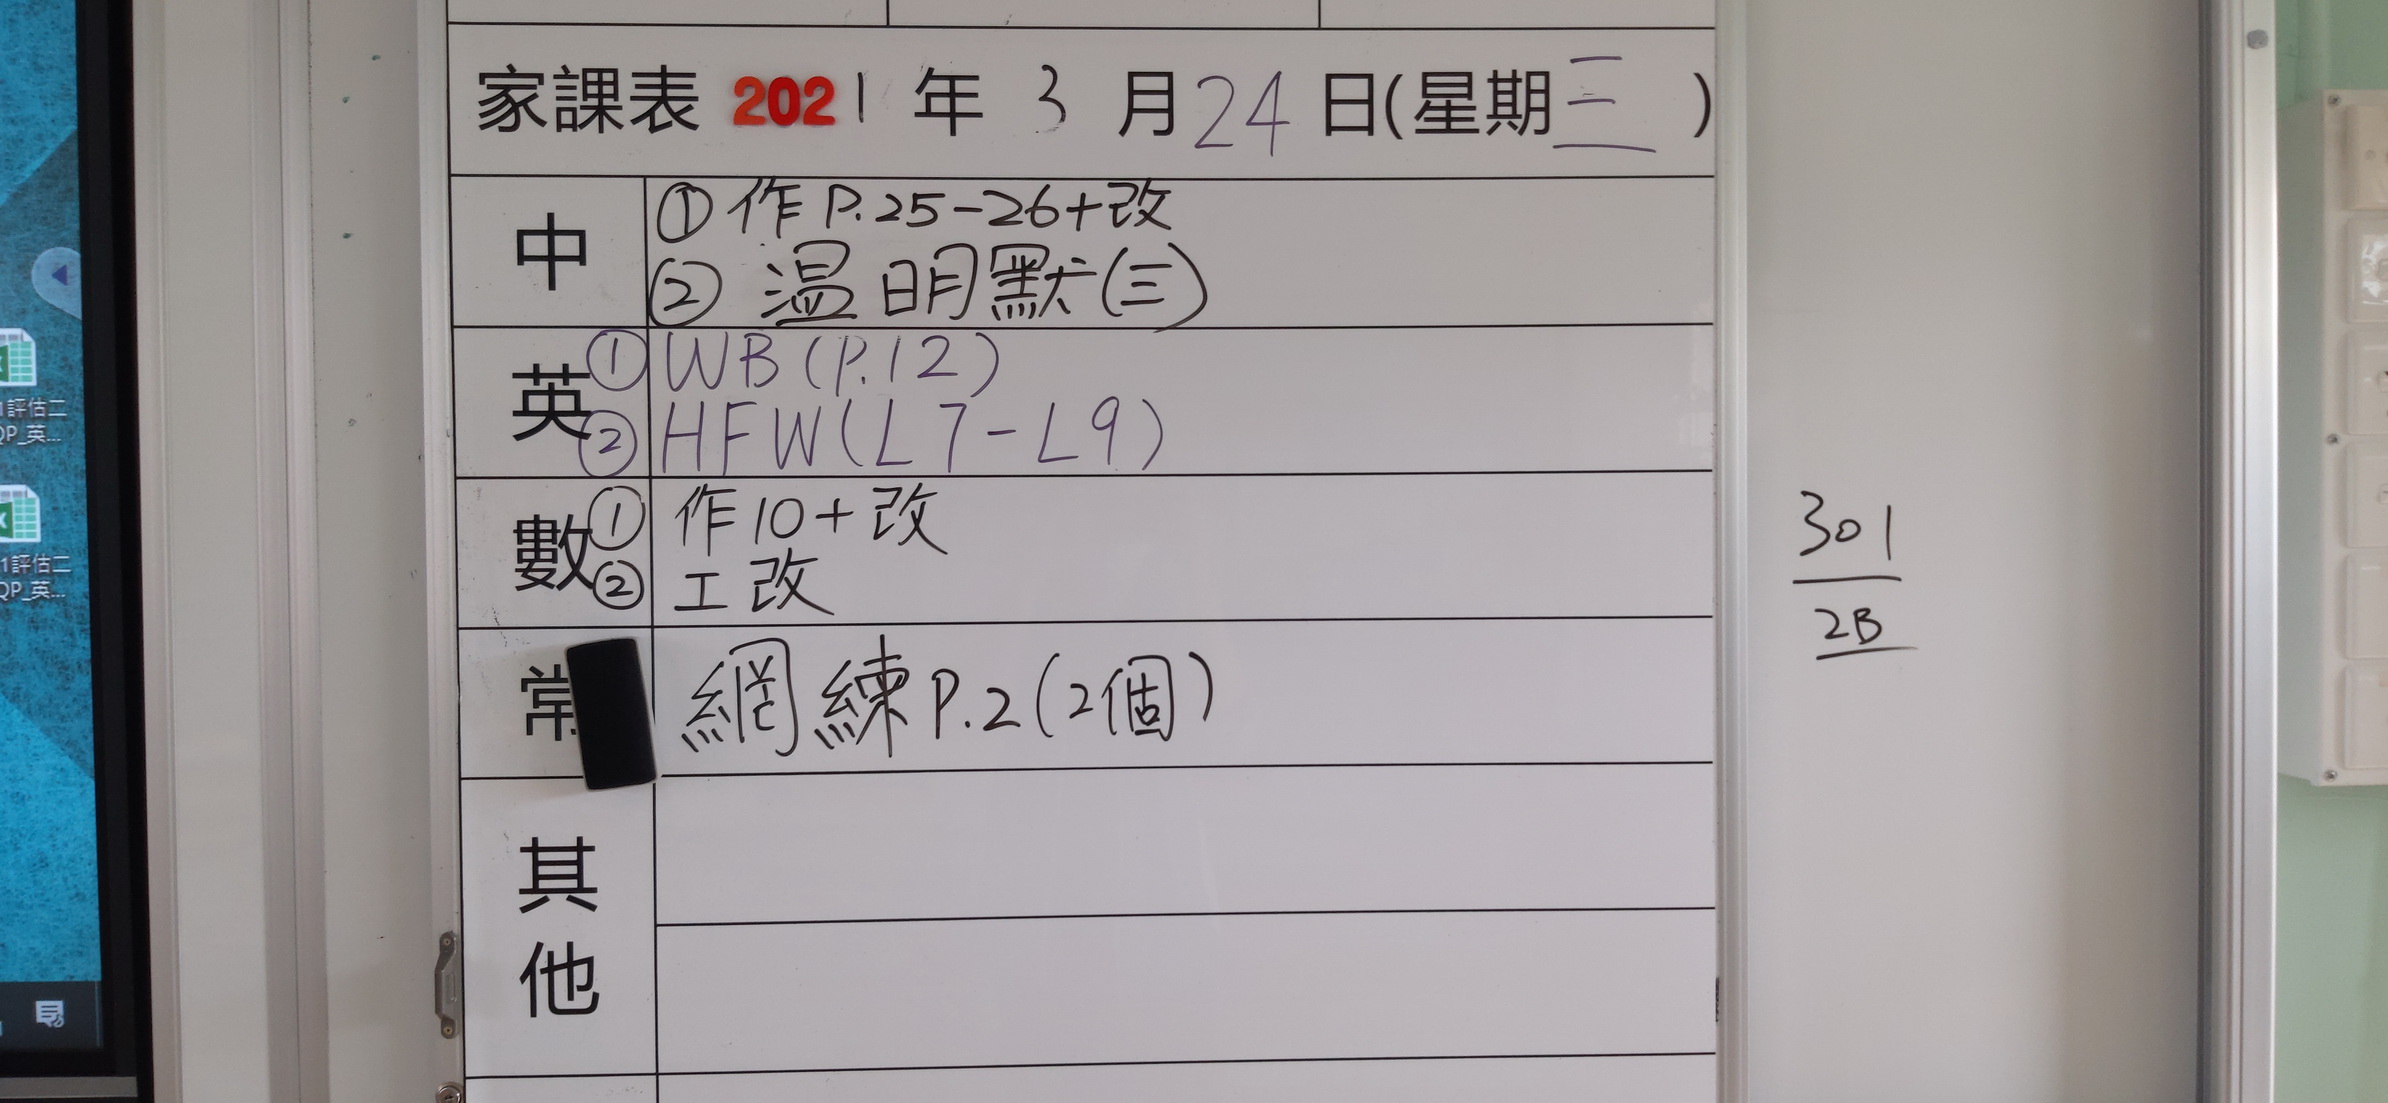 家課表 2021 年 3 月 24 日(星期三)
中
① 作 P.25-26+改
② 温明默(三)
英
① WB (P.12)
② HFW (L7-L9)
數
① 作10+改
② 工改
常
網練 P.2 (2個)
其他
301
2B
1評估二
QP_英...
1評估二
QP_英...